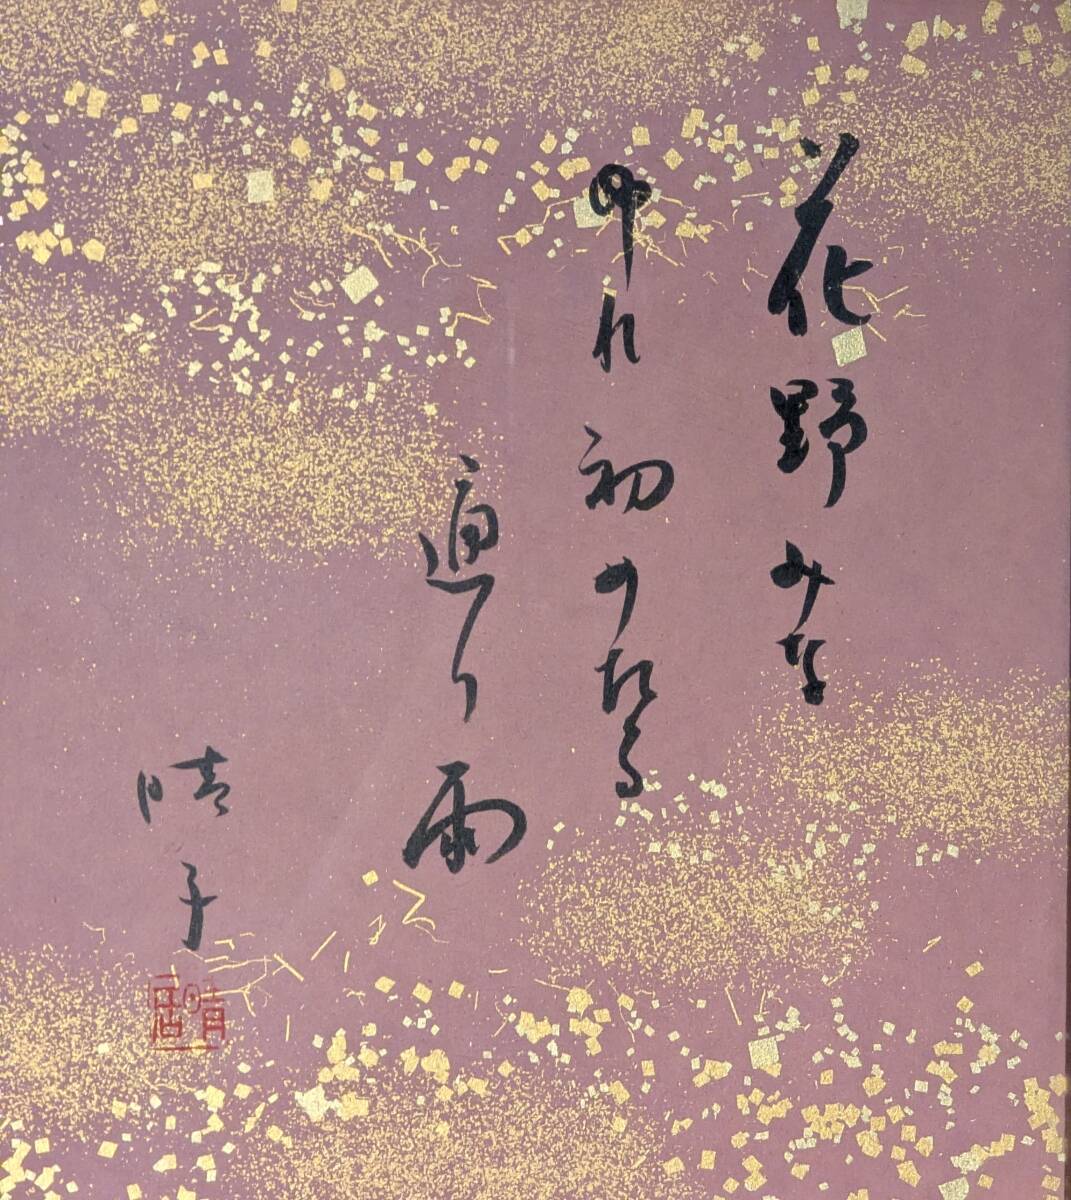 花野みな
ゆれ初めたる
通り雨
晴子
晴居